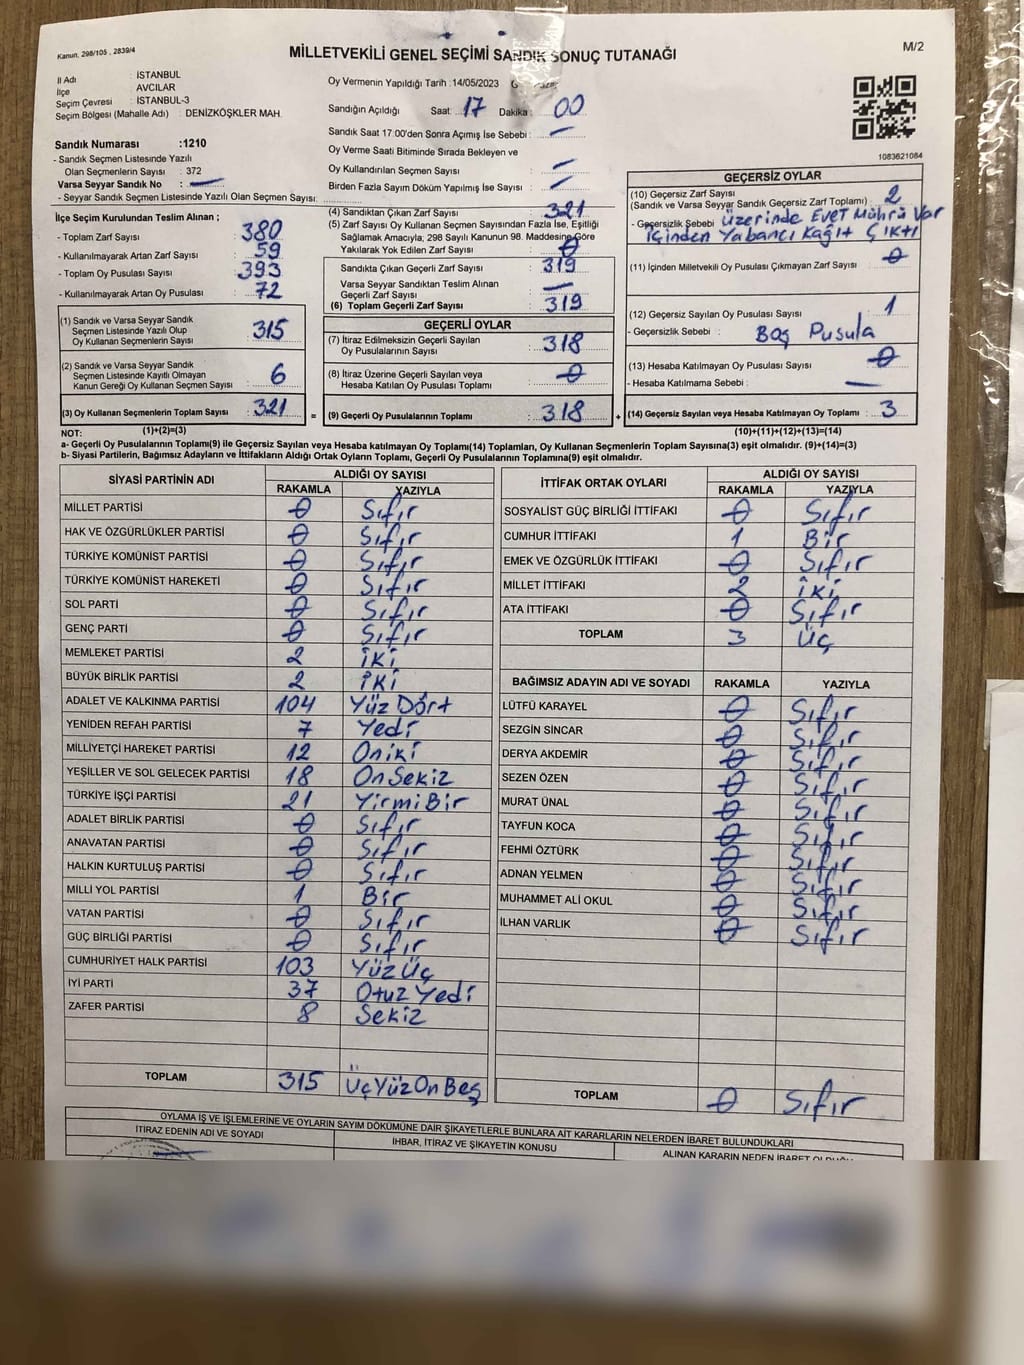 Kanun, 298/105 , 2839/4
MİLLETVEKİLİ GENEL SEÇİMİ SANDIK SONUÇ TUTANAĞI
M/2
İl Adı : İSTANBUL
İlçe AVCILAR
Seçim Çevresi : İSTANBUL-3
Seçim Bölgesi (Mahalle Adı) : DENİZKÖŞKLER MAH.
Oy Vermenin Yapıldığı Tarih : 14/05/2023
Sandığın Açıldığı Saat: 17 Dakika: 00
Sandık Saat 17:00'den Sonra Açımış İse Sebebi : —
Oy Verme Saati Bitiminde Sırada Bekleyen ve
Oy Kullandırılan Seçmen Sayısı : —
Birden Fazla Sayım Döküm Yapılmış İse Sayısı : —
1083621084
Sandık Numarası :1210
- Sandık Seçmen Listesinde Yazılı
Olan Seçmenlerin Sayısı : 372
Varsa Seyyar Sandık No : —
- Seyyar Sandık Seçmen Listesinde Yazılı Olan Seçmen Sayısı:
İlçe Seçim Kurulundan Teslim Alınan ;
- Toplam Zarf Sayısı : 380
- Kullanılmayarak Artan Zarf Sayısı : 59
- Toplam Oy Pusulası Sayısı : 393
- Kullanılmayarak Artan Oy Pusulası : 72
(1) Sandık ve Varsa Seyyar Sandık
Seçmen Listesinde Yazılı Olup
Oy Kullanan Seçmenlerin Sayısı : 315
(2) Sandık ve Varsa Seyyar Sandık
Seçmen Listesinde Kayıtlı Olmayan
Kanun Gereği Oy Kullanan Seçmen Sayısı : 6
(3) Oy Kullanan Seçmenlerin Toplam Sayısı : 321
(4) Sandıktan Çıkan Zarf Sayısı : 321
(5) Zarf Sayısı Oy Kullanan Seçmen Sayısından Fazla İse, Eşitliği
Sağlamak Amacıyla; 298 Sayılı Kanunun 98. Maddesine Göre
Yakılarak Yok Edilen Zarf Sayısı : 0
Sandıkta Çıkan Geçerli Zarf Sayısı : 319
Varsa Seyyar Sandıktan Teslim Alınan
Geçerli Zarf Sayısı : —
(6) Toplam Geçerli Zarf Sayısı : 319
GEÇERLİ OYLAR
(7) İtiraz Edilmeksizin Geçerli Sayılan
Oy Pusulalarının Sayısı : 318
(8) İtiraz Üzerine Geçerli Sayılan veya
Hesaba Katılan Oy Pusulası Toplamı : 0
= (9) Geçerli Oy Pusulalarının Toplamı : 318 +
GEÇERSİZ OYLAR
(10) Geçersiz Zarf Sayısı
(Sandık ve Varsa Seyyar Sandık Geçersiz Zarf Toplamı) : 2
- Geçersizlik Sebebi : Üzerinde Evet Mührü Var
İçinden Yabancı Kağıt Çıktı
(11) İçinden Milletvekili Oy Pusulası Çıkmayan Zarf Sayısı : 0
(12) Geçersiz Sayılan Oy Pusulası Sayısı : 1
- Geçersizlik Sebebi : Boş Pusula
(13) Hesaba Katılmayan Oy Pusulası Sayısı : 0
- Hesaba Katılmama Sebebi : —
(14) Geçersiz Sayılan veya Hesaba Katılmayan Oy Toplamı : 3
NOT: (1)+(2)=(3) (10)+(11)+(12)+(13)=(14)
a- Geçerli Oy Pusulalarının Toplamı(9) ile Geçersiz Sayılan veya Hesaba katılmayan Oy Toplamı(14) Toplamları, Oy Kullanan Seçmenlerin Toplam Sayısına(3) eşit olmalıdır. (9)+(14)=(3)
b- Siyasi Partilerin, Bağımsız Adayların ve İttifakların Aldığı Ortak Oyların Toplamı, Geçerli Oy Pusulalarının Toplamına(9) eşit olmalıdır.
SİYASİ PARTİNİN ADI ALDIĞI OY SAYISI
RAKAMLA YAZIYLA
MİLLET PARTİSİ 0 Sıfır
HAK VE ÖZGÜRLÜKLER PARTİSİ 0 Sıfır
TÜRKİYE KOMÜNİST PARTİSİ 0 Sıfır
TÜRKİYE KOMÜNİST HAREKETİ 0 Sıfır
SOL PARTİ 0 Sıfır
GENÇ PARTİ 0 Sıfır
MEMLEKET PARTİSİ 2 İki
BÜYÜK BİRLİK PARTİSİ 2 İki
ADALET VE KALKINMA PARTİSİ 104 Yüz Dört
YENİDEN REFAH PARTİSİ 7 Yedi
MİLLİYETÇİ HAREKET PARTİSİ 12 Oniki
YEŞİLLER VE SOL GELECEK PARTİSİ 18 OnSekiz
TÜRKİYE İŞÇİ PARTİSİ 21 YirmiBir
ADALET BİRLİK PARTİSİ 0 Sıfır
ANAVATAN PARTİSİ 0 Sıfır
HALKIN KURTULUŞ PARTİSİ 0 Sıfır
MİLLİ YOL PARTİSİ 1 Bir
VATAN PARTİSİ 0 Sıfır
GÜÇ BİRLİĞİ PARTİSİ 0 Sıfır
CUMHURİYET HALK PARTİSİ 103 YüzÜç
İYİ PARTİ 37 OtuzYedi
ZAFER PARTİSİ 8 Sekiz
TOPLAM 315 ÜçYüzOnBeş
İTTİFAK ORTAK OYLARI ALDIĞI OY SAYISI
RAKAMLA YAZIYLA
SOSYALİST GÜÇ BİRLİĞİ İTTİFAKI 0 Sıfır
CUMHUR İTTİFAKI 1 Bir
EMEK VE ÖZGÜRLÜK İTTİFAKI 0 Sıfır
MİLLET İTTİFAKI 2 İki
ATA İTTİFAKI 0 Sıfır
TOPLAM 3 Üç
BAĞIMSIZ ADAYIN ADI VE SOYADI RAKAMLA YAZIYLA
LÜTFÜ KARAYEL 0 Sıfır
SEZGİN SİNCAR 0 Sıfır
DERYA AKDEMİR 0 Sıfır
SEZEN ÖZEN 0 Sıfır
MURAT ÜNAL 0 Sıfır
TAYFUN KOCA 0 Sıfır
FEHMİ ÖZTÜRK 0 Sıfır
ADNAN YELMEN 0 Sıfır
MUHAMMET ALİ OKUL 0 Sıfır
İLHAN VARLIK 0 Sıfır
TOPLAM 0 Sıfır
OYLAMA İŞ VE İŞLEMLERİNE VE OYLARIN SAYIM DÖKÜMÜNE DAİR ŞİKAYETLERLE BUNLARA AİT KARARLARIN NELERDEN İBARET BULUNDUKLARI
İTİRAZ EDENİN ADI VE SOYADI
İHBAR, İTİRAZ VE ŞİKAYETİN KONUSU
ALINAN KARARIN NEDEN İBARET OLDUĞU